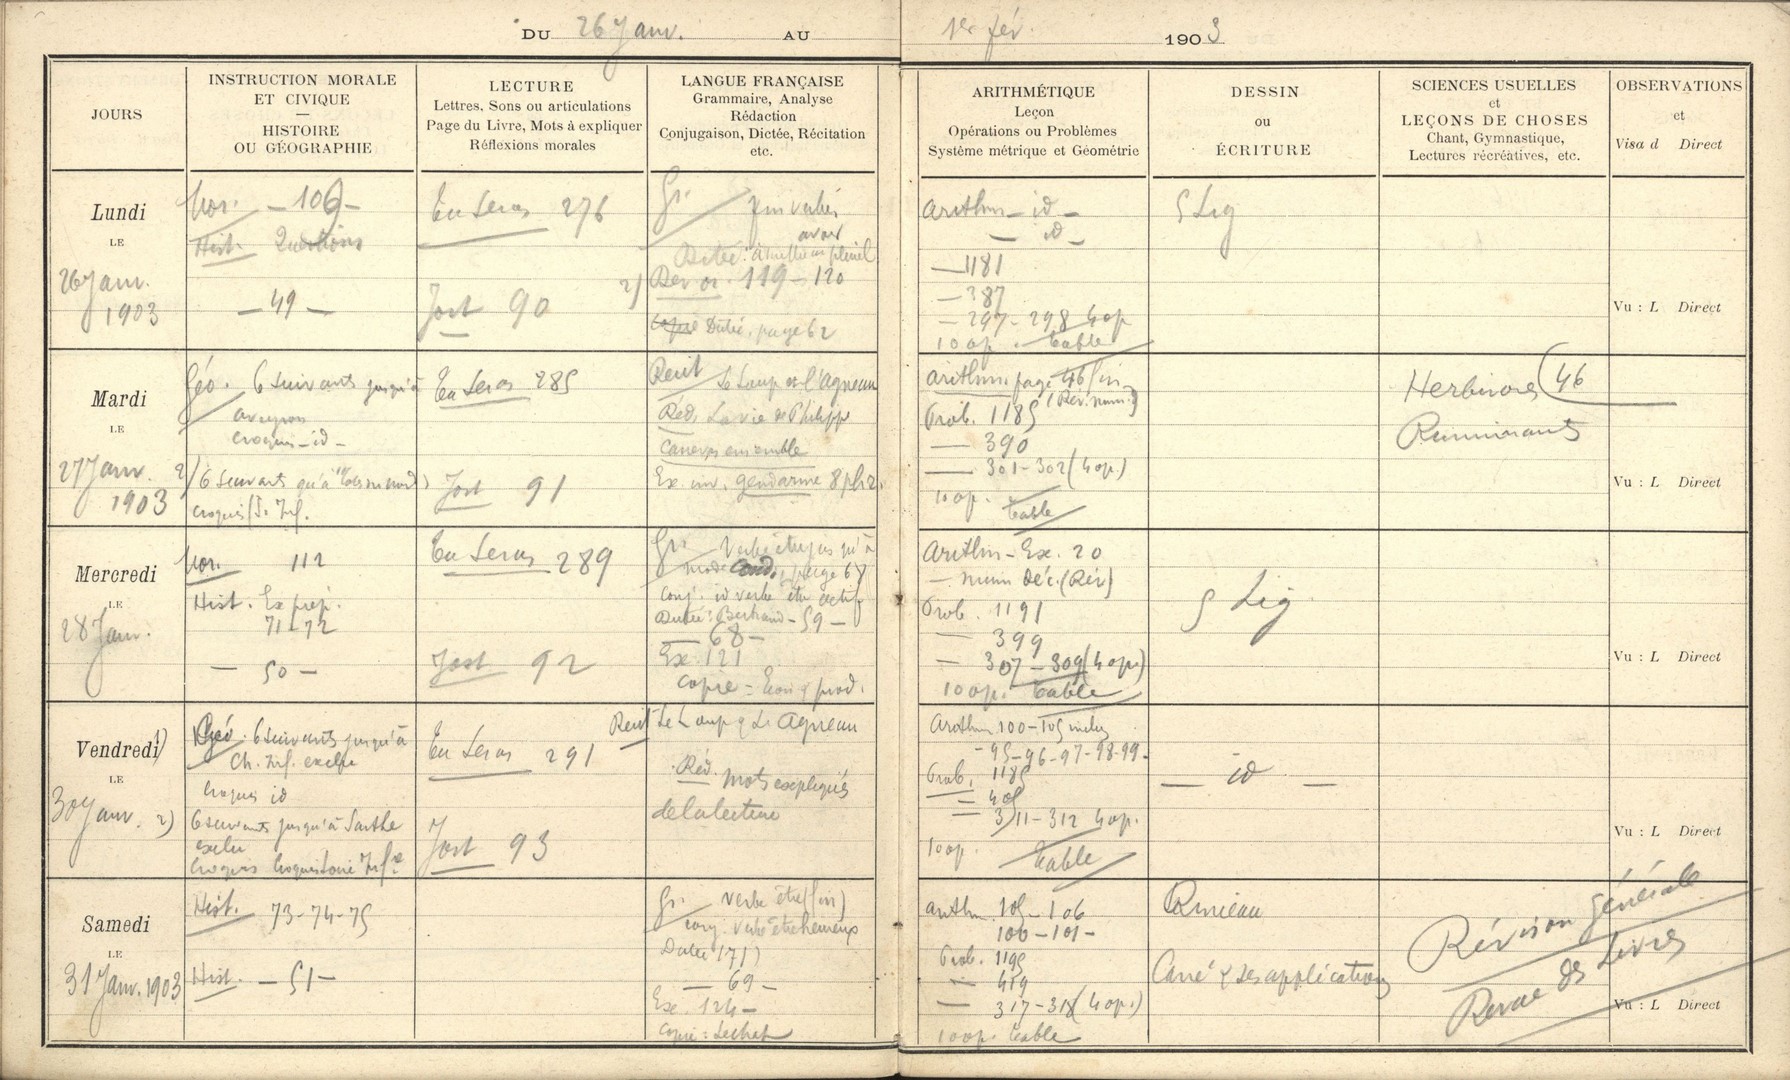 DU 26 Janv. AU 1er fév. 1903
JOURS
INSTRUCTION MORALE
ET CIVIQUE
—
HISTOIRE
OU GÉOGRAPHIE
LECTURE
Lettres, Sons ou articulations
Page du Livre, Mots à expliquer
Réflexions morales
LANGUE FRANÇAISE
Grammaire, Analyse
Rédaction
Conjugaison, Dictée, Récitation
etc.
ARITHMÉTIQUE
Leçon
Opérations ou Problèmes
Système métrique et Géométrie
DESSIN
ou
ÉCRITURE
SCIENCES USUELLES
et
LEÇONS DE CHOSES
Chant, Gymnastique,
Lectures récréatives, etc.
OBSERVATIONS
et
Visa d Direct
Lundi
LE
26 Janv.
1903
Mor. — 106 —
Hist. Questions
— 49 —
Tu Seras 276
Jost 90
Gr.
avoir
2) Dev or. 119 - 120
Dictée, page 62
Arithm — id —
— id —
— 1181
— 387
— 297 - 298 4 op
10 op. table
5 Lig
Vu : L Direct
Mardi
LE
27 Janv.
1903
Géo. 6 suivants jusqu'à
aveyron
croquis — id —
2) 6 suivants
croquis
Tu Seras 285
Jost 91
Récit Le Loup et l'Agneau
Réd. La vie de Philippe
canevas ensemble
Ex. inv. gendarme 8 ph
Arithm. page 46 fin
(Rév. num.)
Prob. 1185
— 390
— 301 - 302 (4 op.)
10 op. table
Herbivores (46
Ruminants
Vu : L Direct
Mercredi
LE
28 Janv.
Mor. 112
Hist. Ex prép.
71 - 72
— 50 —
Tu Seras 289
Jost 92
Gr. Verbe être jusqu'à
mode Cond., page 67
conj. id verbe être actif
Dictée : Bertrand - 59 —
— 68 —
Ex 121
copie =
Arithm - Ex. 20
— num déc. (Rév)
Prob. 1191
— 399
— 307 - 309 (4 op.)
10 op. table
5 Lig
Vu : L Direct
Vendredi 1)
LE
30 Janv. 2)
Géo. 6 suivants jusqu'à
Ch. Inf. exclu
Croquis id
6 suivants jusqu'à Sarthe
exclu
Croquis Loire Infre
Tu Seras 291
Jost 93
Récit Le Loup & L'Agneau
Réd. Mots expliqués
de la lecture
Arithm 100 - 105 inclus
- 95 - 96 - 97 - 98 - 99 -
Prob. 1185
— 405
— 311 - 312 4 op.
10 op. table
— id —
Vu : L Direct
Samedi
LE
31 Janv. 1903
Hist. 73 - 74 - 75
Hist. — 51 —
Gr. Verbe être (fin)
conj. verbe être heureux
Dictée (71)
— 69 —
Ex. 124 —
Copie : Le chat
Arithm. 105 - 106
100 - 101 -
Prob. 1195
— 414
— 317 - 318 (4 op.)
10 op. table
Carré & ses applications
Révision générale
Revue des Livres
Vu : L Direct